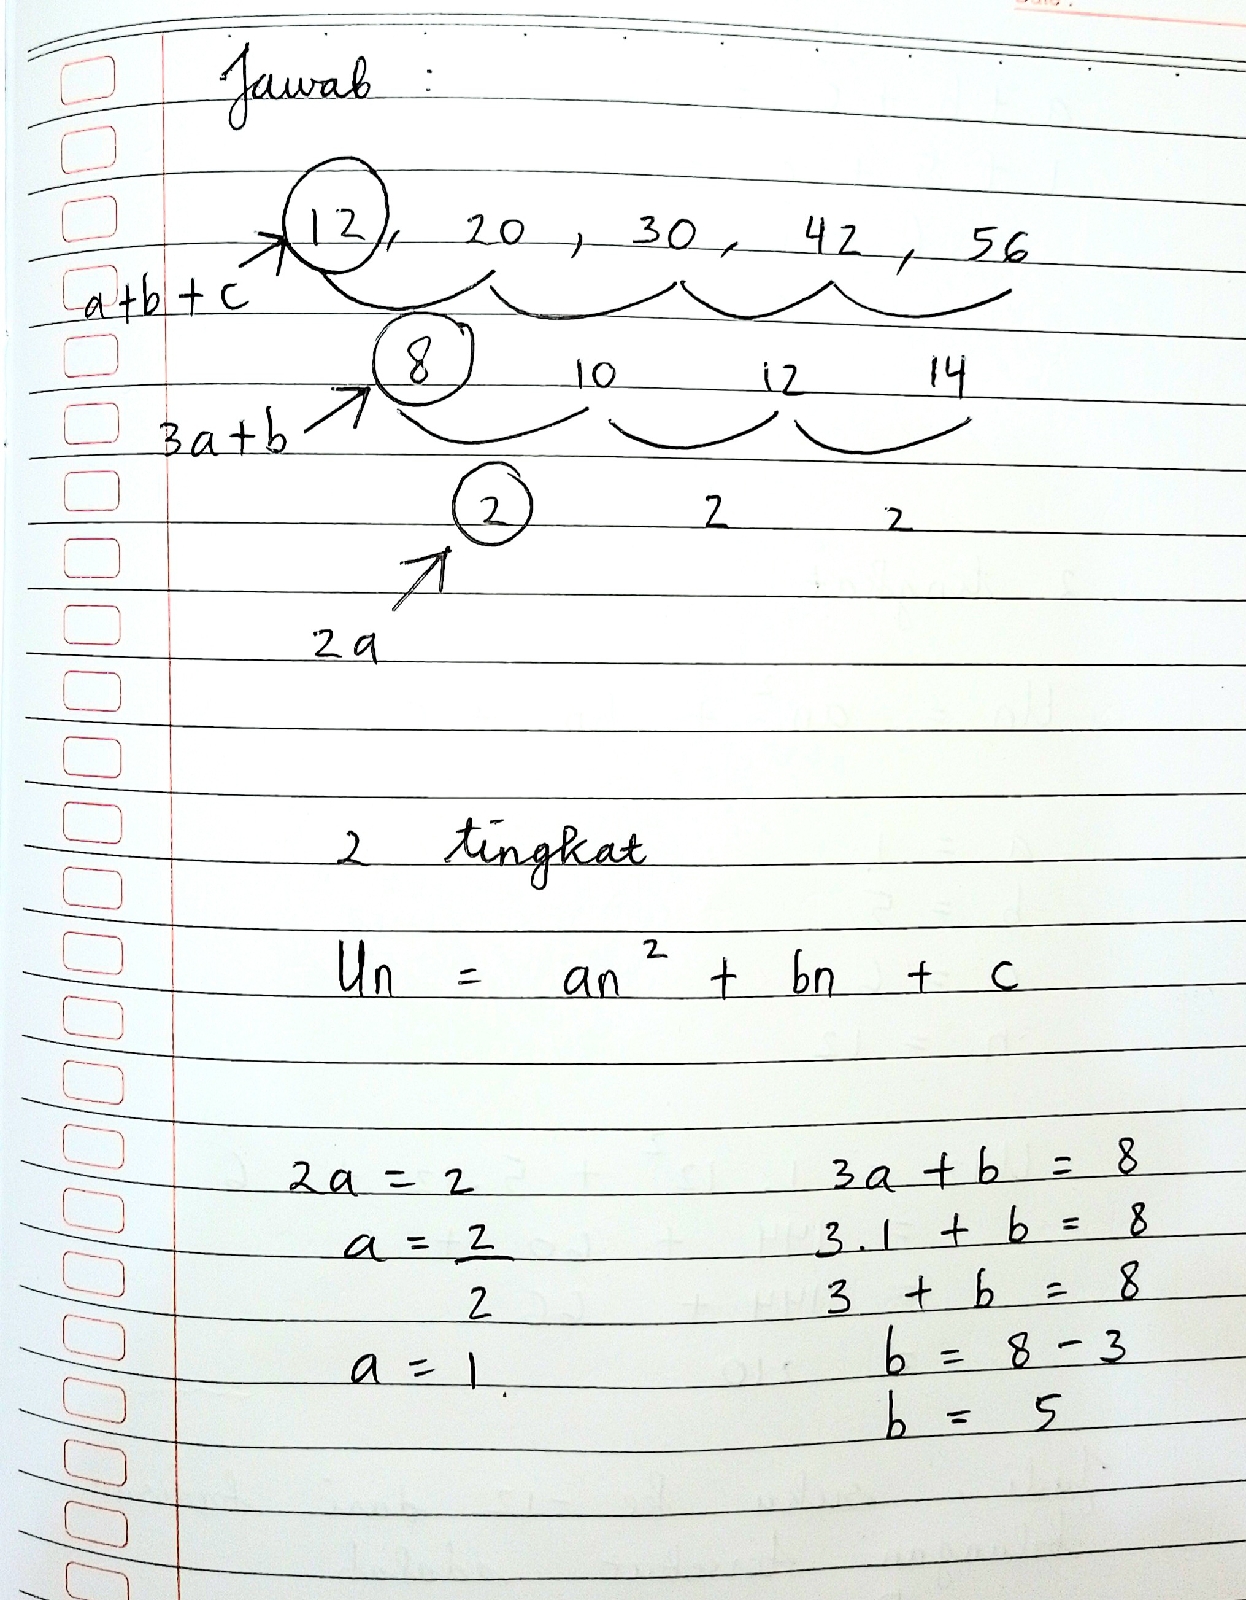 Jawab :
12, 20, 30, 42, 56
a+b+c
8 10 12 14
3a+b
2 2 2
2a
2 tingkat
Un = an² + bn + c
2a = 2 3a + b = 8
a = 2 3.1 + b = 8
2 3 + b = 8
a = 1. b = 8 - 3
b = 5